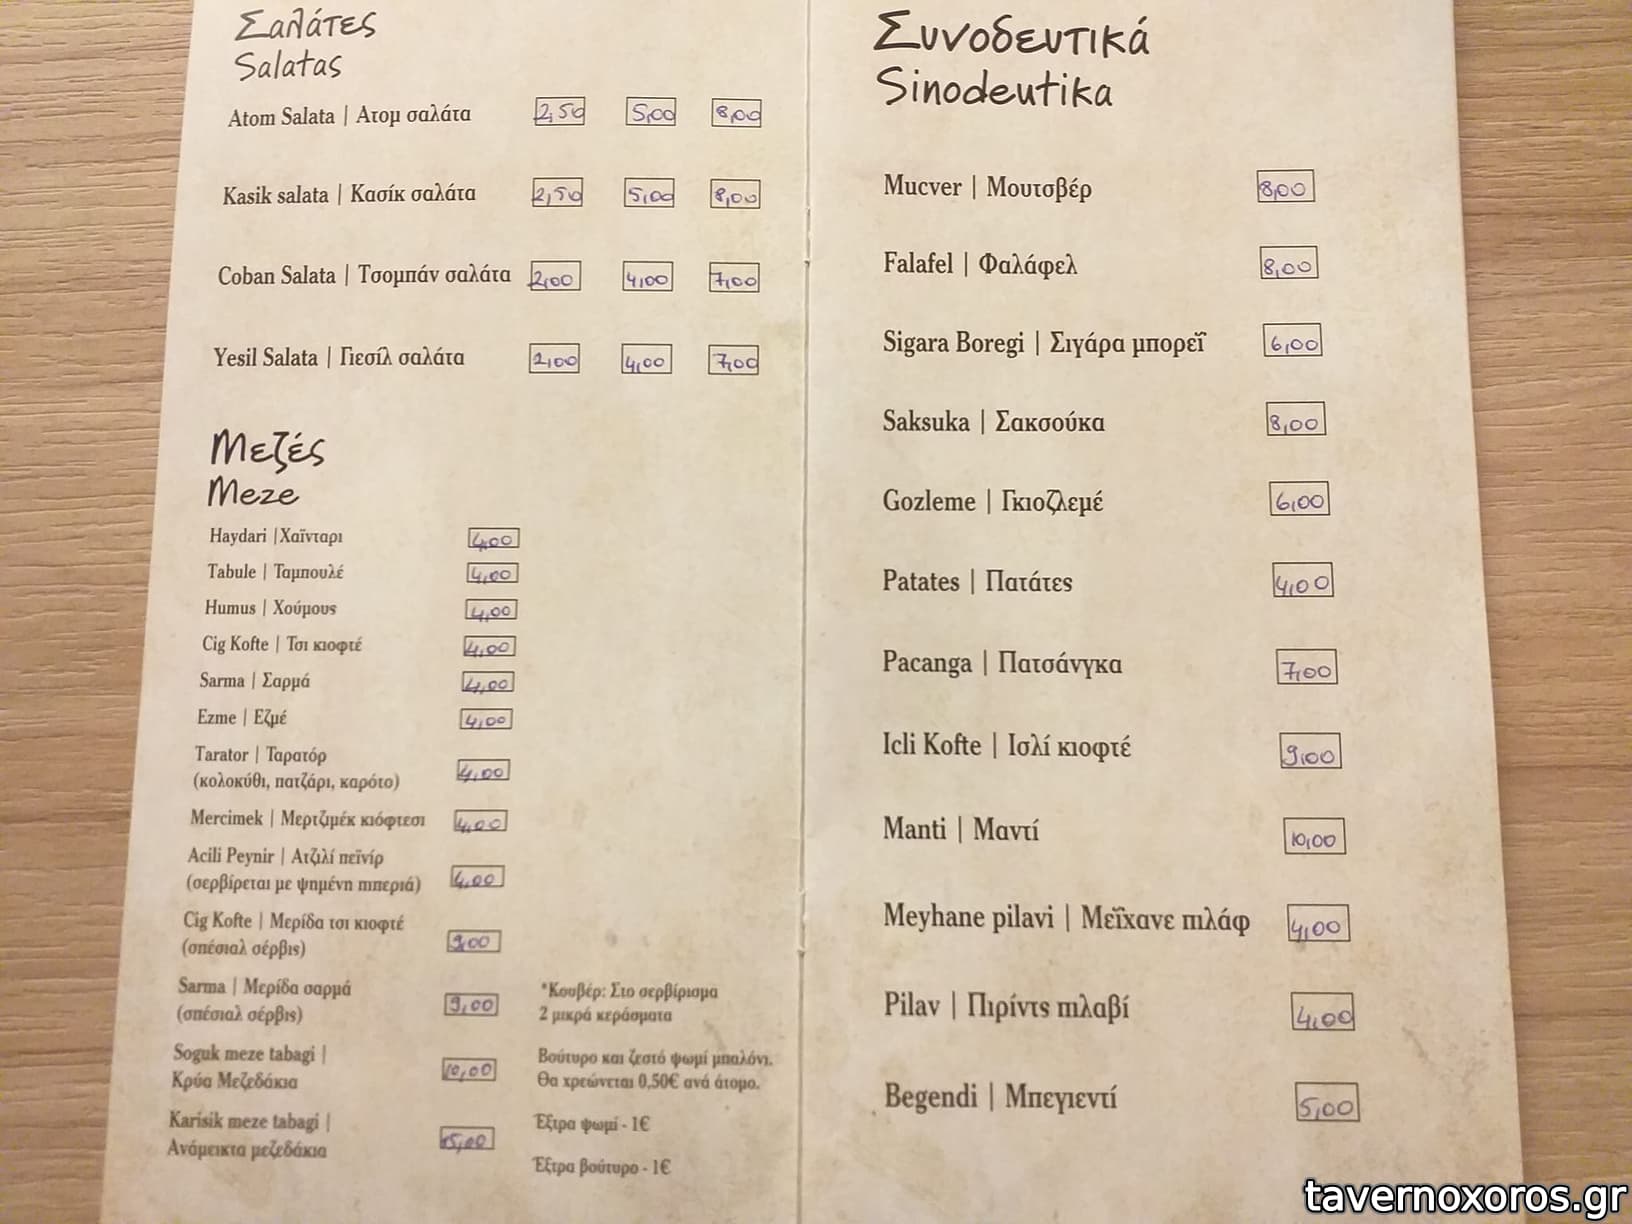 Σαλάτες
Salatas
Atom Salata | Ατομ σαλάτα 2,50 5,00 8,00
Kasik salata | Κασίκ σαλάτα 2,50 5,00 8,00
Coban Salata | Τσομπάν σαλάτα 2,00 4,00 7,00
Yesil Salata | Γιεσίλ σαλάτα 2,00 4,00 7,00
Μεζές
Meze
Haydari |Χαϊνταρι 4,00
Tabule | Ταμπουλέ 4,00
Humus | Χούμους 4,00
Cig Kofte | Τσι κιοφτέ 4,00
Sarma | Σαρμά 4,00
Ezme | Εζμέ 4,00
Tarator | Ταρατόρ
(κολοκύθι, πατζάρι, καρότο) 4,00
Mercimek | Μερτζιμέκ κιόφτεσι 4,00
Acili Peynir | Ατζιλί πεϊνίρ
(σερβίρεται με ψημένη μπεριά) 4,00
Cig Kofte | Μερίδα τσι κιοφτέ
(σπέσιαλ σέρβις) 9,00
Sarma | Μερίδα σαρμά
(σπέσιαλ σέρβις) 9,00
Soguk meze tabagi |
Κρύα Μεζεδάκια 10,00
Karisik meze tabagi |
Ανάμεικτα μεζεδάκια 15,00
*Κουβέρ: Στο σερβίρισμα
2 μικρά κεράσματα
Βούτυρο και ζεστό ψωμί μπαλόνι.
Θα χρεώνεται 0,50€ ανά άτομο.
Έξτρα ψωμί - 1€
Έξτρα βούτυρο - 1€
Συνοδευτικά
Sinodeutika
Mucver | Μουτσβέρ 8,00
Falafel | Φαλάφελ 8,00
Sigara Boregi | Σιγάρα μπορεΐ 6,00
Saksuka | Σακσούκα 8,00
Gozleme | Γκιοζλεμέ 6,00
Patates | Πατάτες 4,00
Pacanga | Πατσάνγκα 7,00
Icli Kofte | Ισλί κιοφτέ 9,00
Manti | Μαντί 10,00
Meyhane pilavi | Μεΐχανε πιλάφ 4,00
Pilav | Πιρίντς πιλαβί 4,00
Begendi | Μπεγιεντί 5,00
tavernoxoros.gr